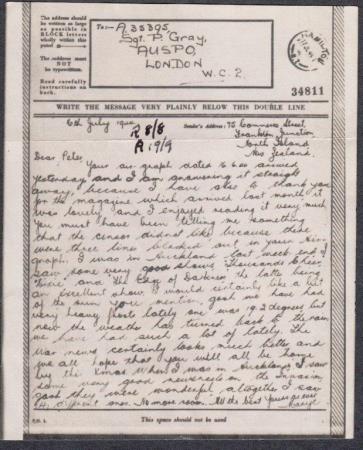 The address should
be written as large
as possible in
BLOCK letters
wholly within this
panel
The address must
NOT
be typewritten.
Read carefully
instructions on
back.
To:— A 33395
Sgt. P. Gray,
AUSPO,
LONDON
W.C.2.
HAMILTON
34811
WRITE THE MESSAGE VERY PLAINLY BELOW THIS DOUBLE LINE
6th July
Sender's Address: 75 Commerce Street,
Frankton Junction,
North Island
New Zealand.
R 8/8
A 19/9
Dear Peter,
Your air graph dated arrived
yesterday and I am answering it straight
away, because I have also to thank you
for the magazine which arrived last month it
was lovely and I enjoyed reading it very much.
You must have been telling me something
that the censor didnt like because there
were three lines blacked out in your Air
graph. I was in Auckland last week end I
saw some very good shows Thousands Cheer,
and The of Darkness the latter being
an excellent show. I would certainly like a bit
of the sun you mention, gosh we have had
very heavy frosts lately one was 19.2 degrees but
now the weather has turned back to the rain
we have had such a lot of lately. The
War news certainly looks much better and
we all hope that you will all be home
by the Xmas. When I was in Auckland I saw
some very good newsreels on the Invasion
gosh they were wonderful, altogether I saw
4 different ones. No more room. All the best yours as ever
This space should not be used